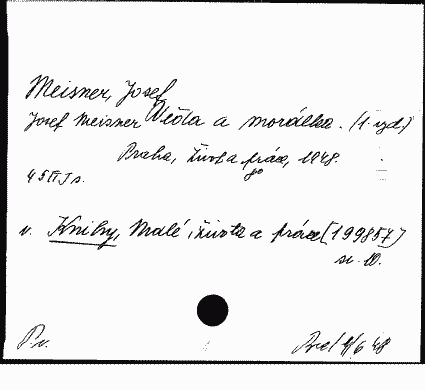 Meisner, Josef
Josef Meisner Věda a morálka. (1. vyd.)
Praha, Život a práce, 1948.
45 s.
v. Knihy, Malé, života a práce [199857]
sv. 10.
Pv.